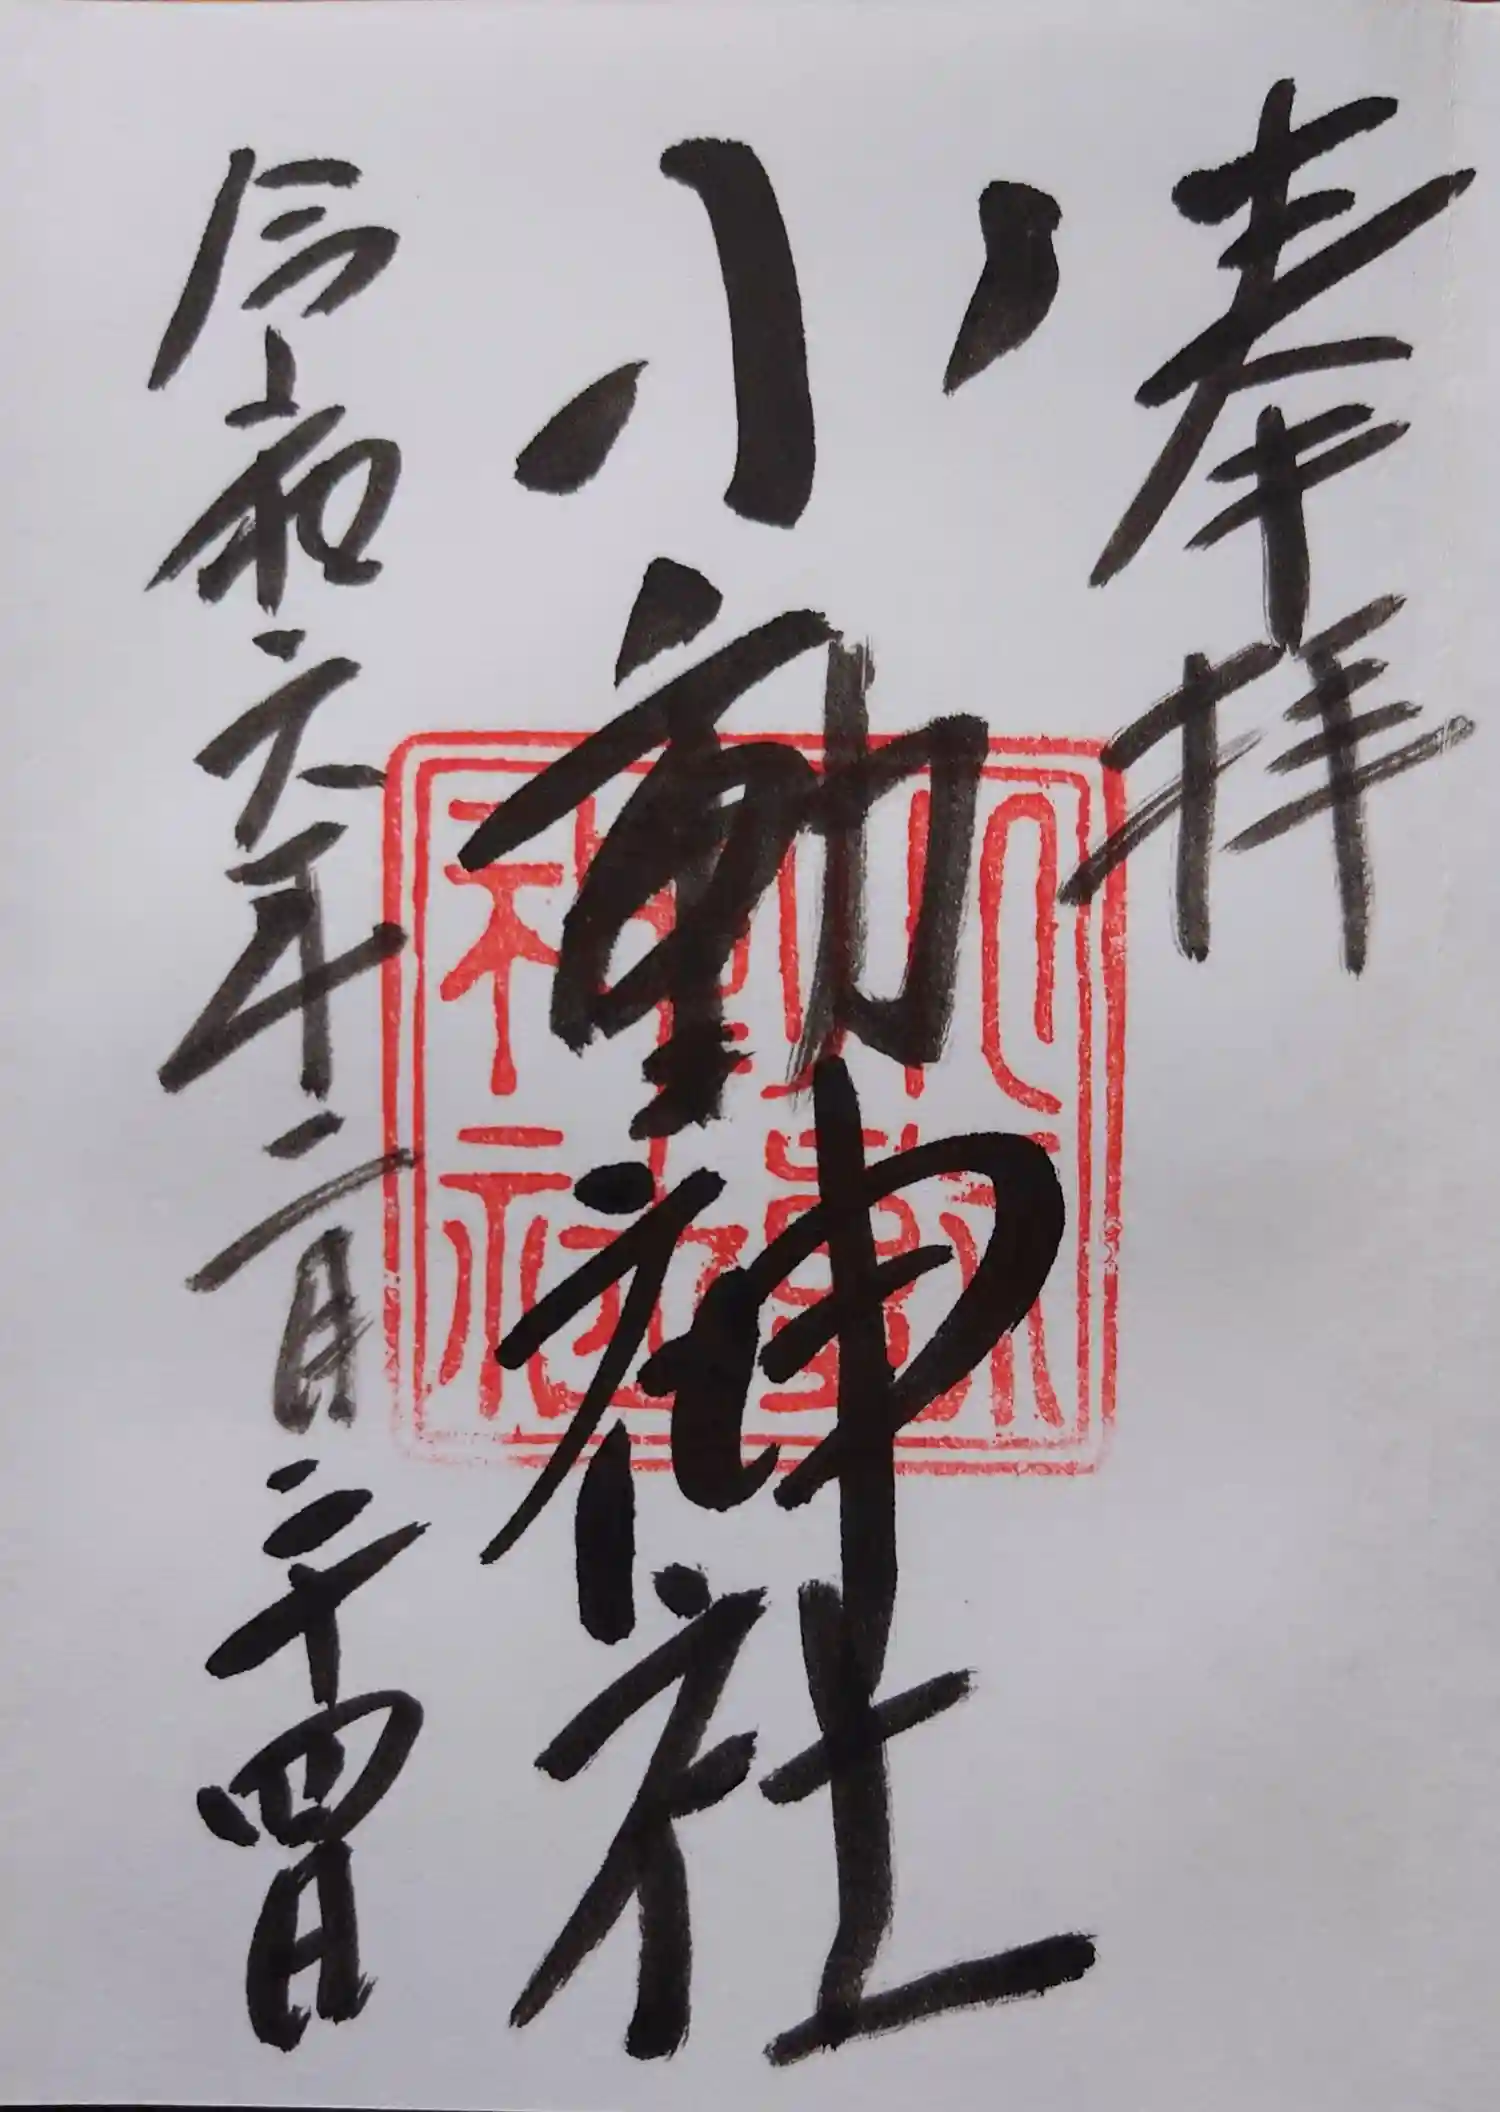 奉拝
小動神社
令和六年二月二十四日
小動
神社